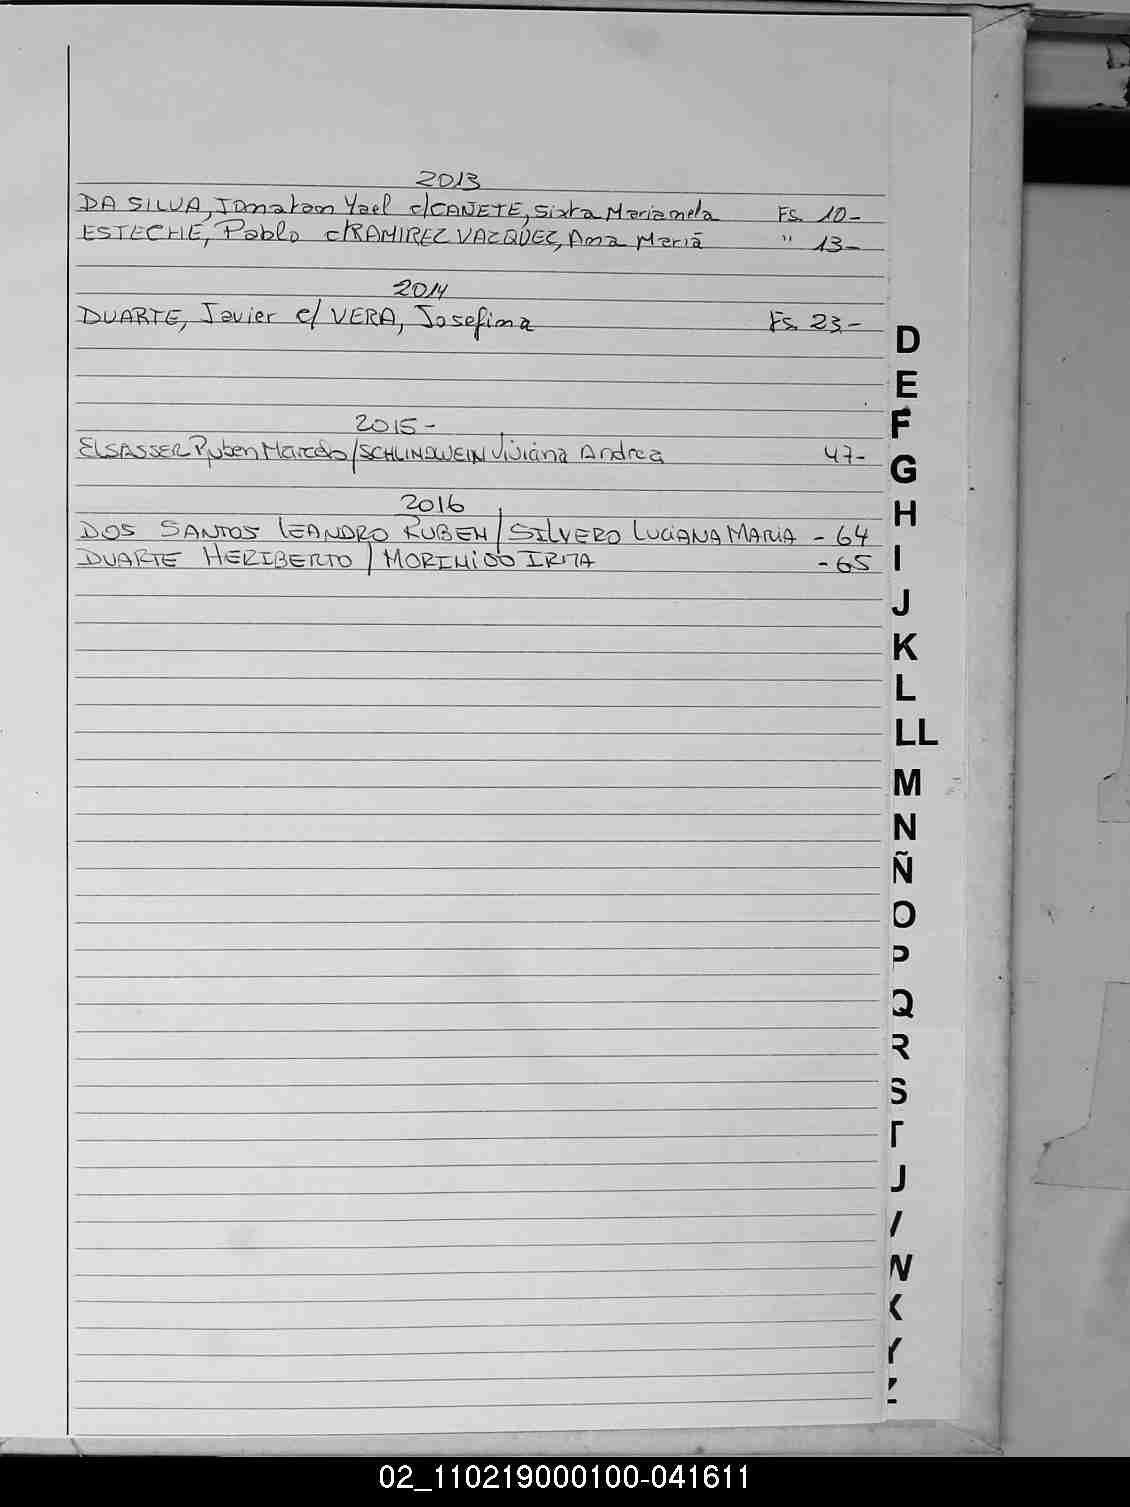 2013
DA SILVA, Jonatan Yael c/CAÑETE, Sixta Mariamela Fs. 10-
ESTECHE, Pablo c/RAMIREZ VAZQUEZ, Ana María " 13-
2014
DUARTE, Javier c/ VERA, Josefina Fs. 23-
2015-
ELSASSER Ruben Marcelo/SCHLINDWEIN Viviana Andrea 47-
2016
DOS SANTOS LEANDRO RUBEN / SILVERO LUCIANA MARIA - 64
DUARTE HERIBERTO / IRMA - 65
D
E
F
G
H
I
J
K
L
LL
M
N
Ñ
O
P
Q
R
S
T
U
V
W
X
Y
Z
02_110219000100-041611